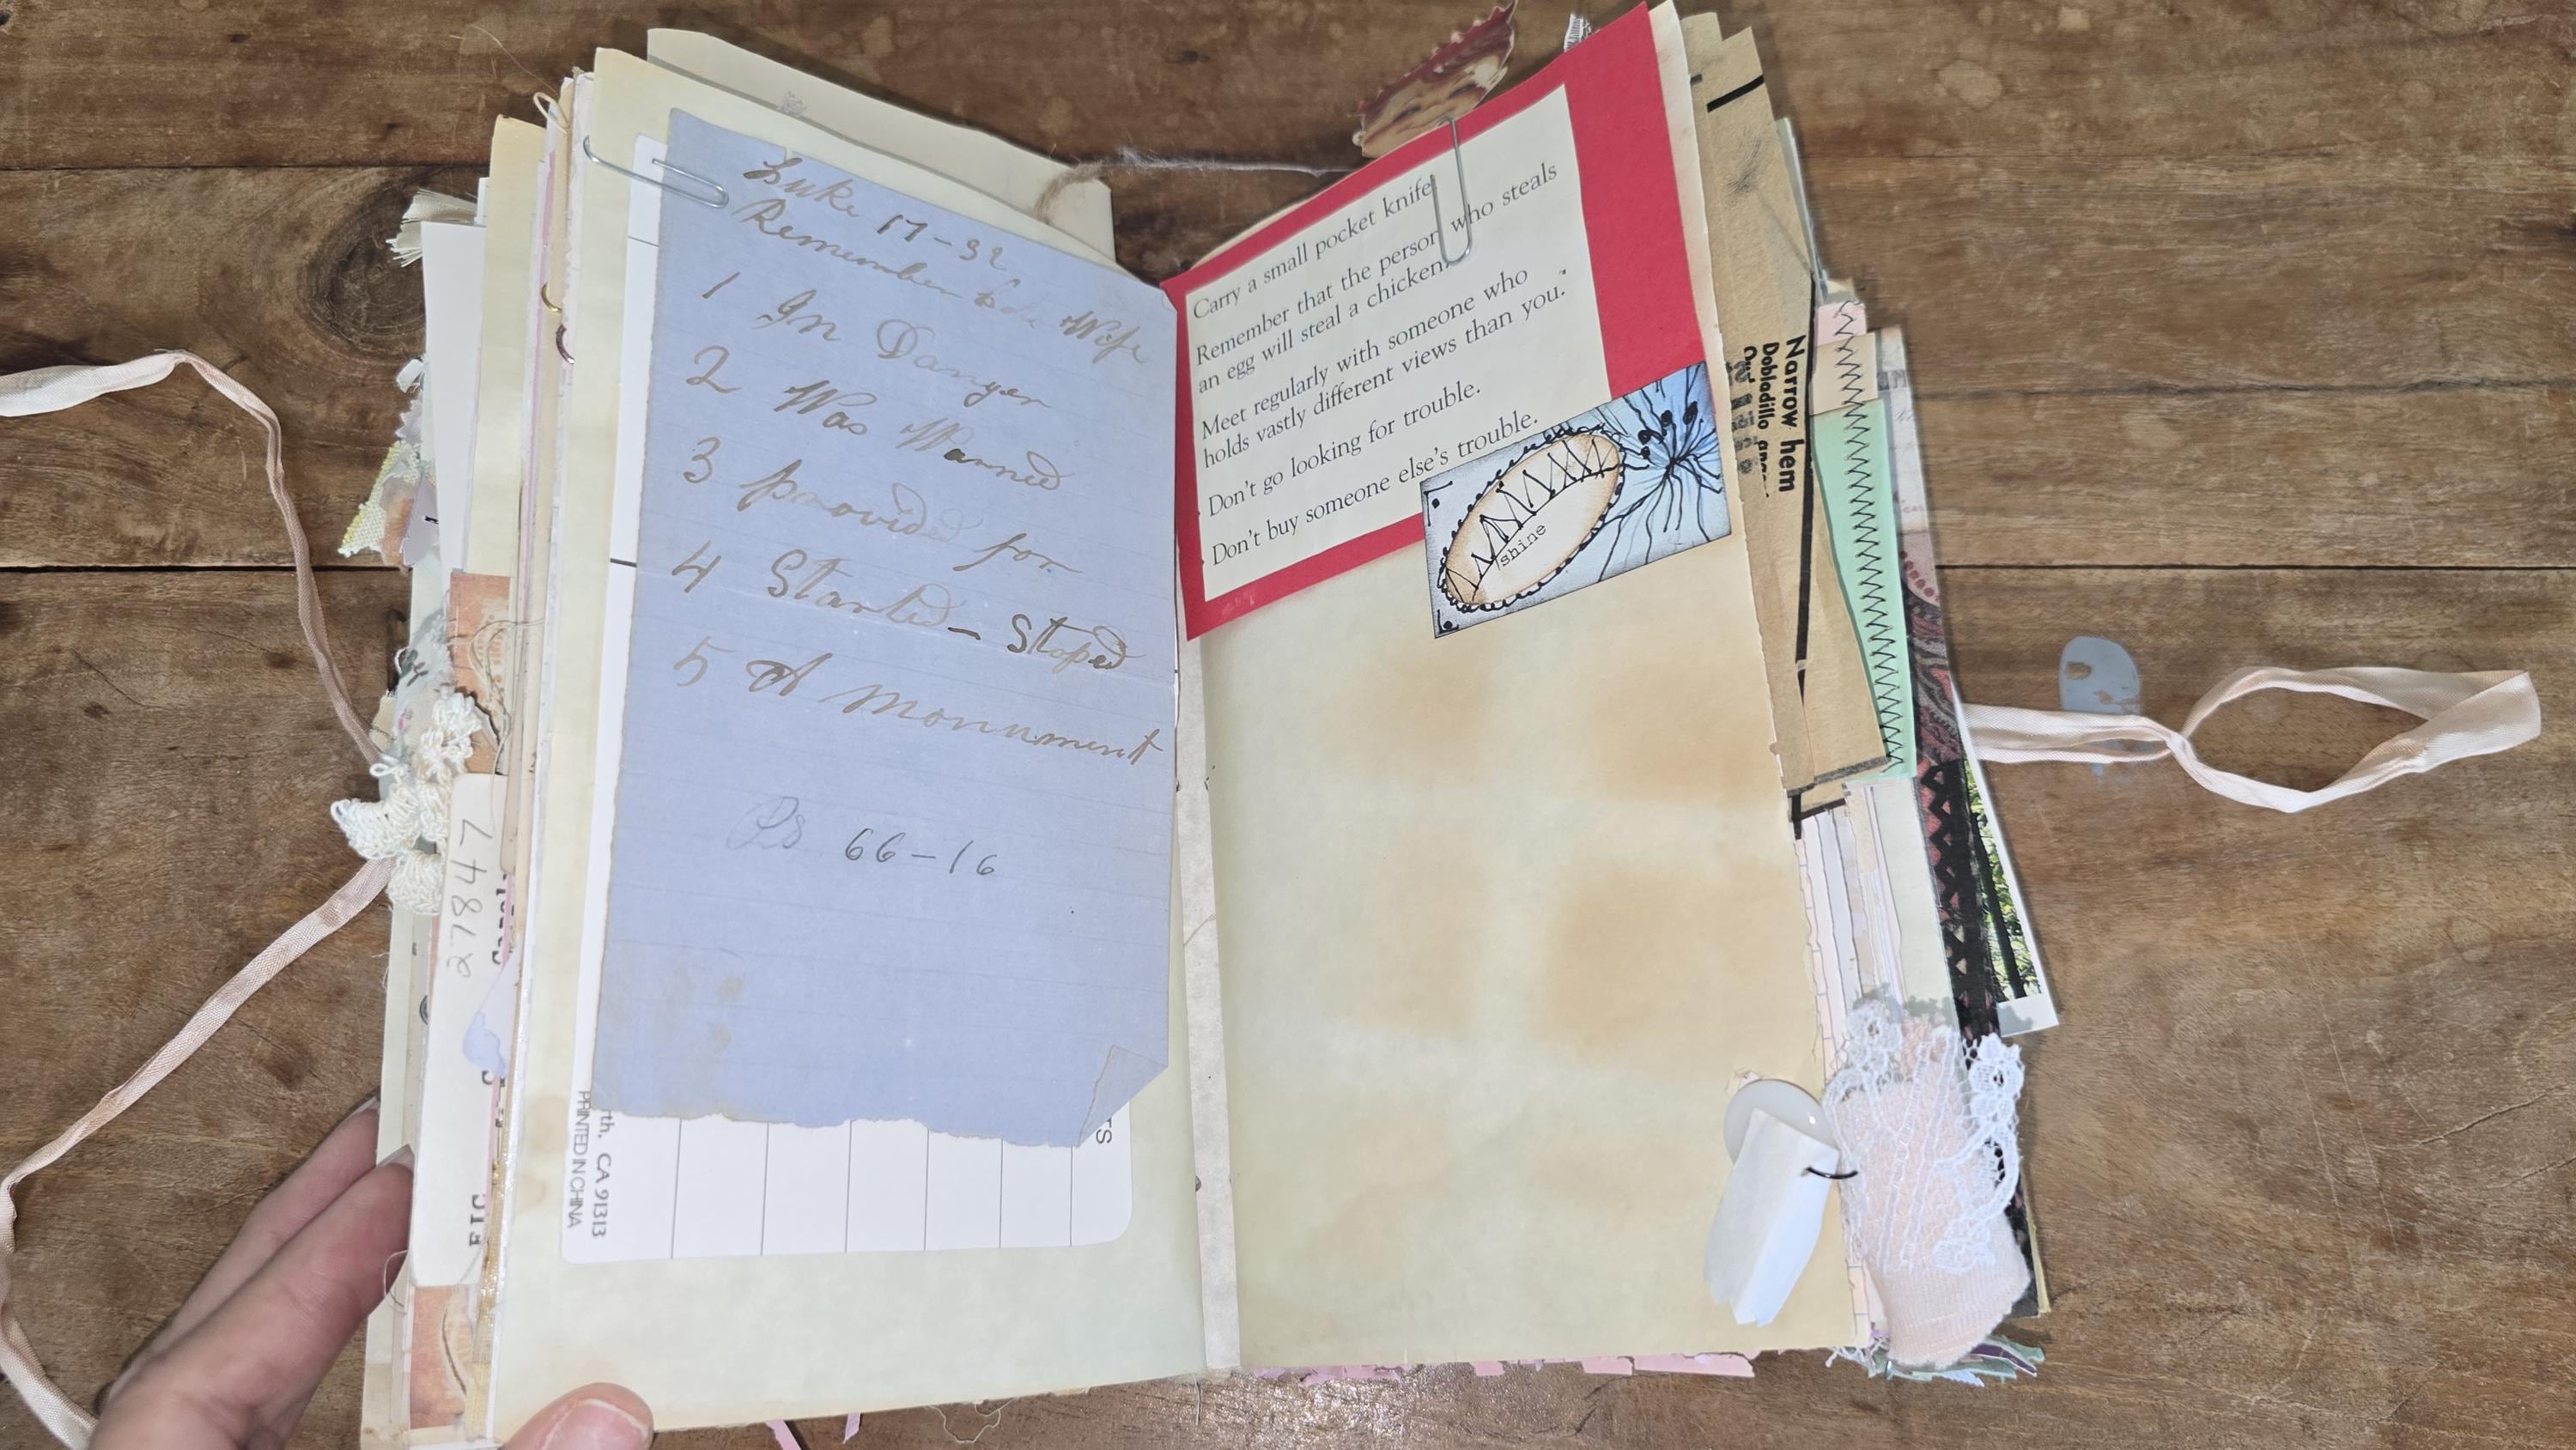 Luke 17-32
Remember Lots Wife
1 In Danger
2 Was Warned
3 provided for
4 Started - Stoped
5 A monument
Ps 66-16
rth, CA 91313
PRINTED IN CHINA
TS
27847
FIC
Carry a small pocket knife.
Remember that the person who steals
an egg will steal a chicken.
Meet regularly with someone who
holds vastly different views than you.
Don't go looking for trouble.
Don't buy someone else's trouble.
shine
Narrow hem
Dobladillo